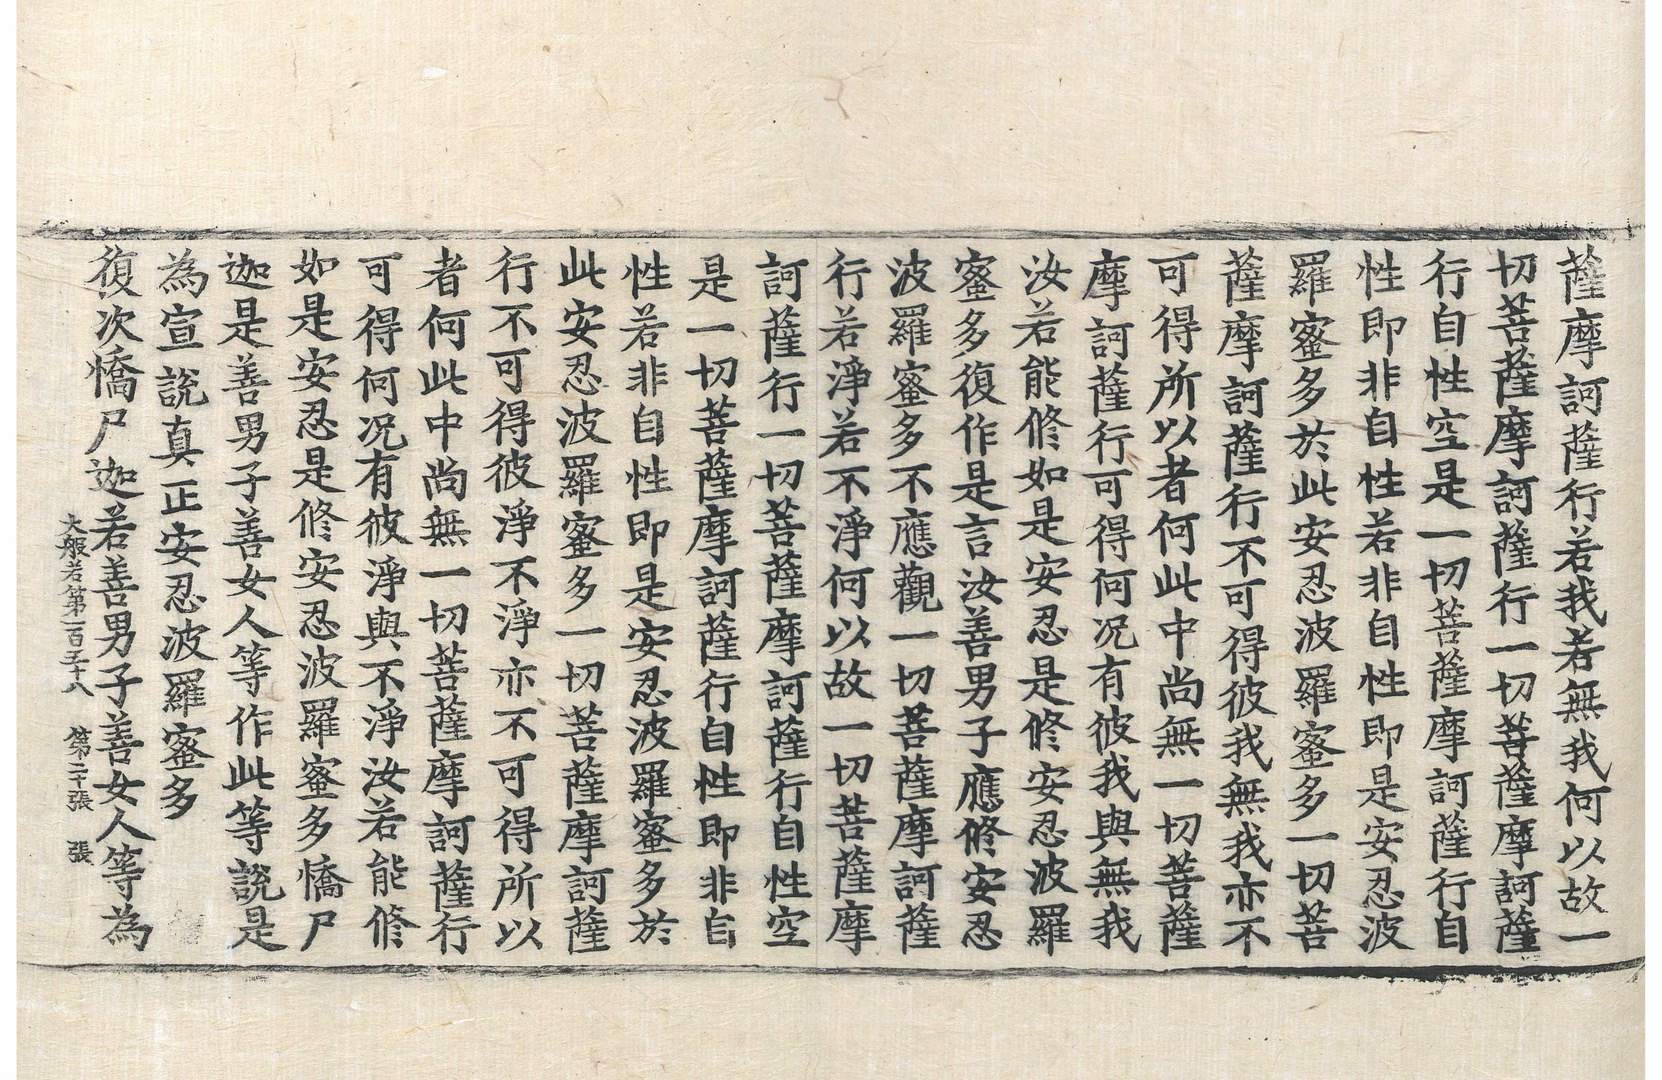 薩摩訶薩行若我若無我何以故一
切菩薩摩訶薩行一切菩薩摩訶薩
行自性空是一切菩薩摩訶薩行自
性即非自性若非自性即是安忍波
羅蜜多於此安忍波羅蜜多一切菩
薩摩訶薩行不可得彼我無我亦不
可得所以者何此中尚無一切菩薩
摩訶薩行可得何况有彼我與無我
汝若能修如是安忍是修安忍波羅
蜜多復作是言汝善男子應修安忍
波羅蜜多不應觀一切菩薩摩訶薩
行若淨若不淨何以故一切菩薩摩
訶薩行一切菩薩摩訶薩行自性空
是一切菩薩摩訶薩行自性即非自
性若非自性即是安忍波羅蜜多於
此安忍波羅蜜多一切菩薩摩訶薩
行不可得彼淨不淨亦不可得所以
者何此中尚無一切菩薩摩訶薩行
可得何况有彼淨與不淨汝若能修
如是安忍是修安忍波羅蜜多憍尸
迦是善男子善女人等作此等說是
為宣說真正安忍波羅蜜多
復次憍尸迦若善男子善女人等為
大般若第一百五十八 第二十張 張